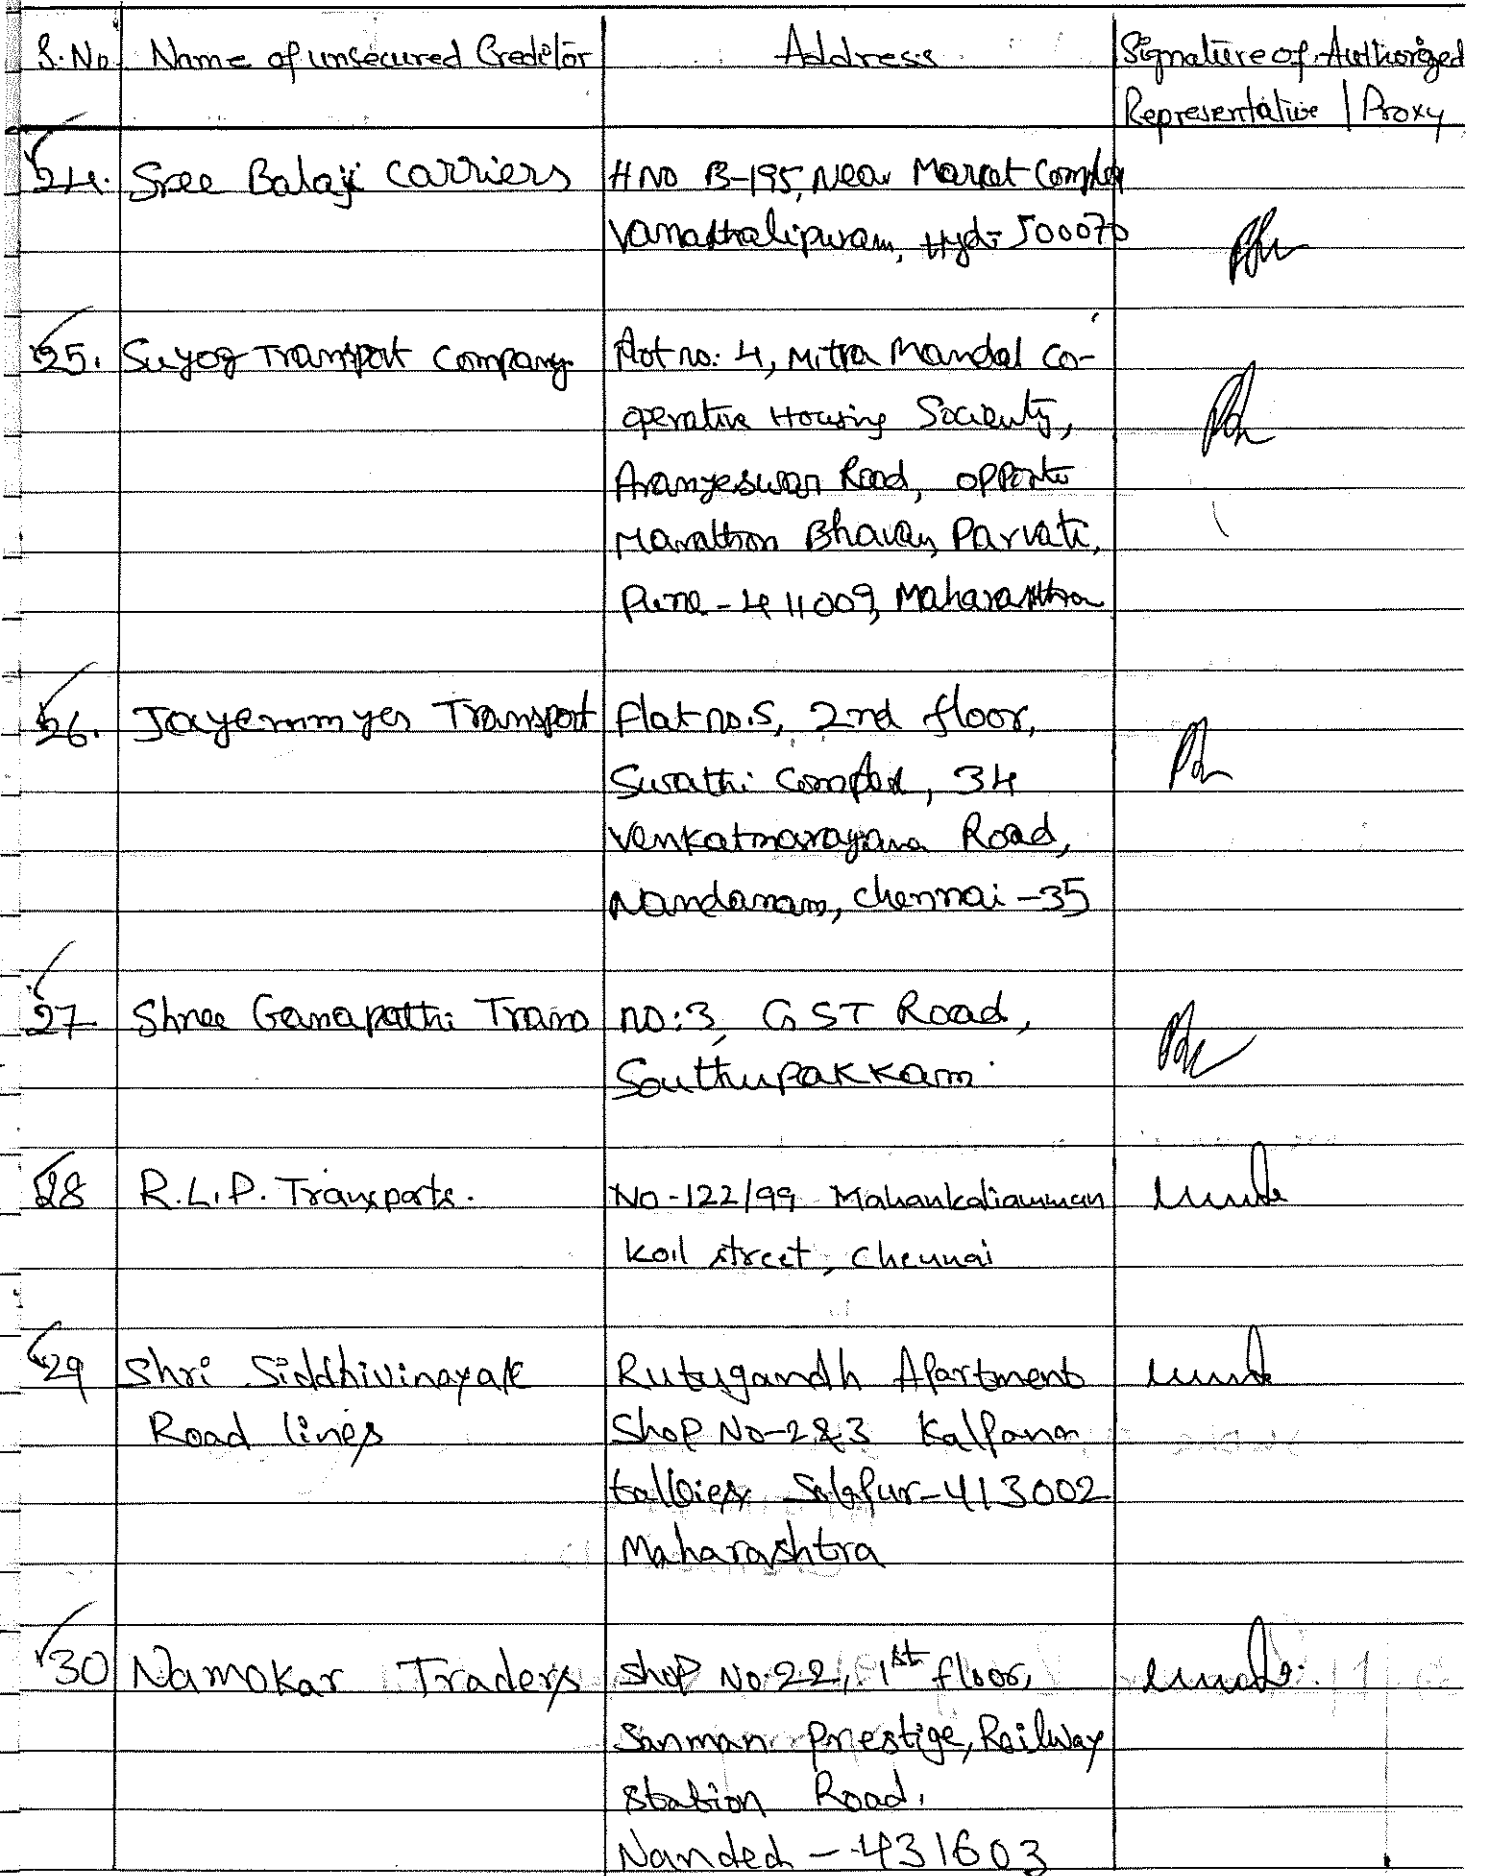 S.No Name of unsecured Creditor Address Signature of Authorized
Representative / Proxy
24. Sree Balaji Carriers H NO B-195, Near Market Complex
Vanasthalipuram, Hyd- 500070
25. Suyog Transport Company Plot no: 4, Mitra Mandal Co-
operative Housing Society,
Aranyeswar Road, opposite
Marathon Bhavan, Parvati,
Pune - 411009, Maharashtra
26. Jayemmyes Transport Flat no. 5, 2nd floor,
Swathi Complex, 34
Venkatnarayana Road,
Nandanam, Chennai - 35
27 Shree Ganapathi Trans no: 3, GST Road,
Southupakkam
28 R.L.P. Transports. No - 122/99 Mahankaliamman
Koil street, Chennai
29 Shri Siddhivinayak Rutugandh Apartment
Road lines Shop No-2&3 Kalpana
Solapur - 413002
Maharashtra
30 Namokar Traders Shop No. 22, 1st floor,
Sanman Prestige, Railway
Station Road.
Nanded - 431603